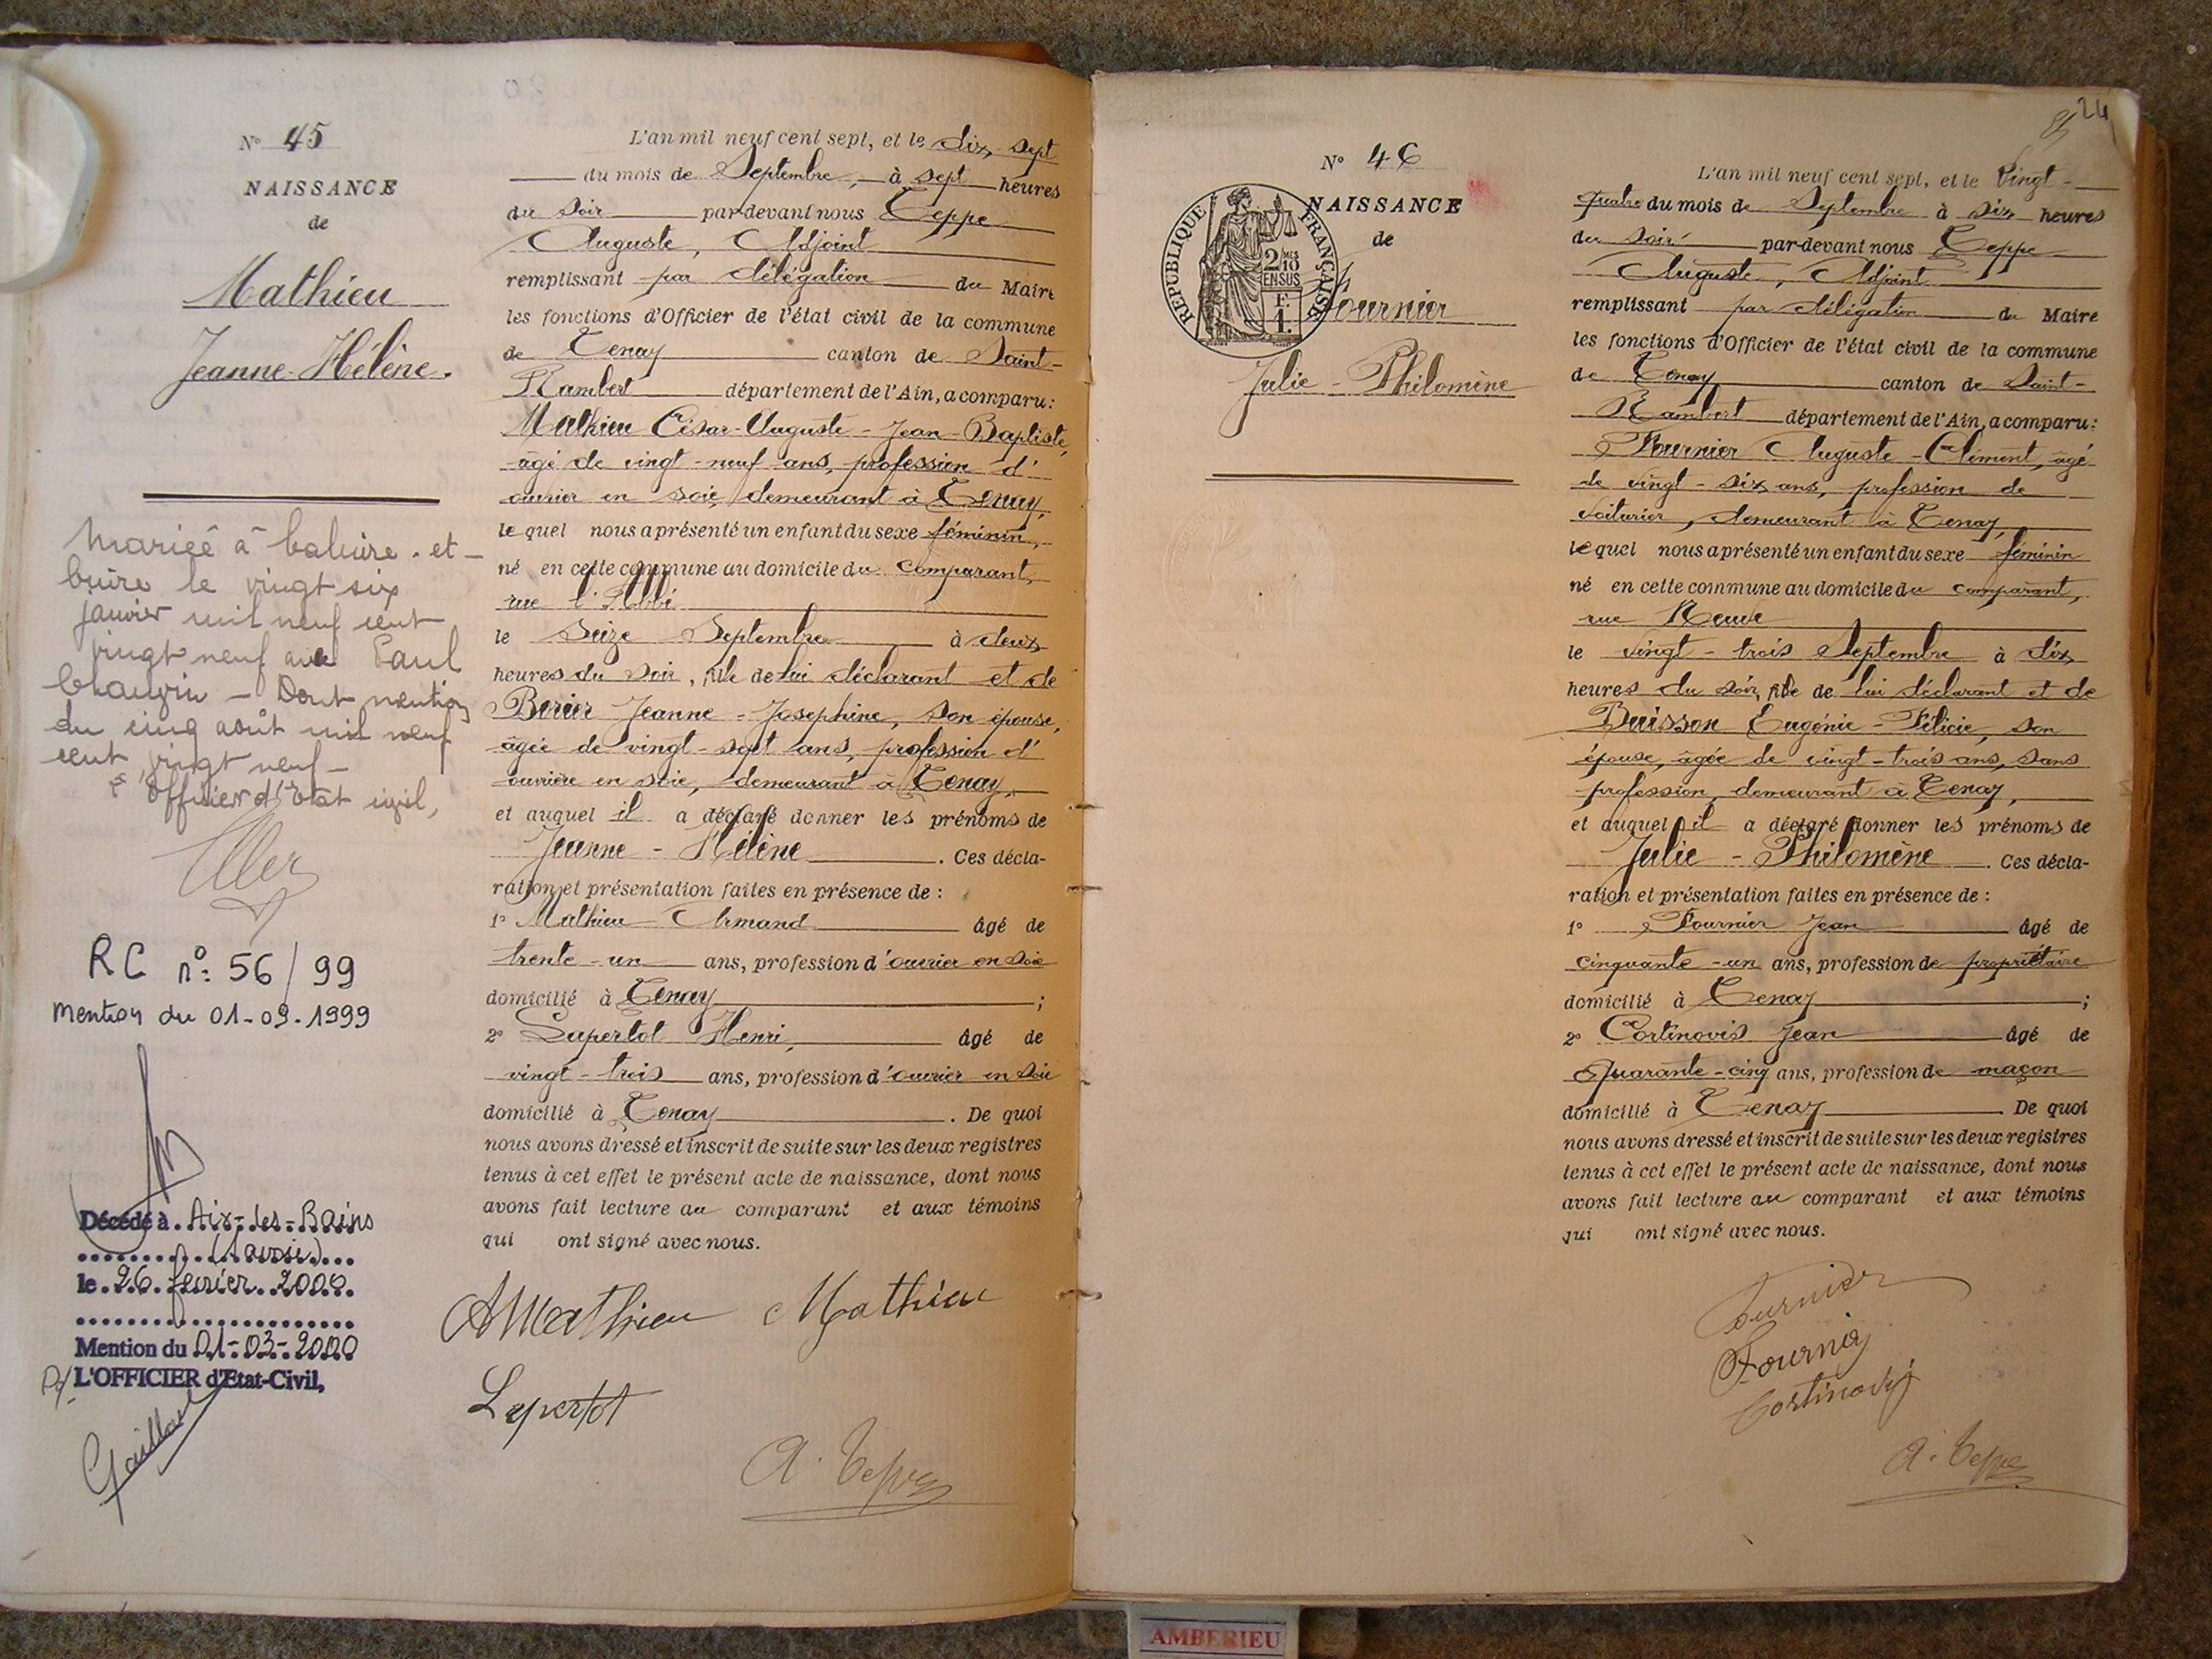 N° 45
NAISSANCE
de
Mathieu
Jeanne-Hélène.
Mariée à Caluire-et-
Cuire le vingt six
janvier mil neuf cent
vingt neuf avec Paul
Chauvin - Dont mention
du cinq août mil neuf
cent vingt neuf -
Officier d'Etat civil,
RC n°: 56/99
Mention du 01-09-1999
Décédé à Aix-Les-Bains
(Savoie)
le 26 février 2000
Mention du 01-03-2000
L'OFFICIER d'Etat-Civil,
L'an mil neuf cent sept, et le dix-sept
du mois de Septembre, à sept heures
du soir par-devant nous Teppe
Auguste, Adjoint
remplissant par délégation du Maire
les fonctions d'Officier de l'état civil de la commune
de Tenay canton de Saint-
Rambert département de l'Ain, a comparu:
Mathieu César-Auguste-Jean-Baptiste,
âgé de vingt-neuf ans, profession d'
ouvrier en soie, demeurant à Tenay,
lequel nous a présenté un enfant du sexe féminin,
né en cette commune au domicile du comparant,
rue l'Abbé
le seize Septembre à deux
heures du soir, fille de lui déclarant et de
Jeanne-Josephine, son épouse,
âgée de vingt-sept ans, profession d'
ouvrière en soie, demeurant à Tenay,
et auquel il a déclaré donner les prénoms de
Jeanne-Hélène. Ces décla-
ration et présentation faites en présence de:
1° Mathieu Armand âgé de
trente-un ans, profession d'ouvrier en soie
domicilié à Tenay;
2° Lupertot Henri, âgé de
vingt-trois ans, profession d'ouvrier en soie
domicilié à Tenay. De quoi
nous avons dressé et inscrit de suite sur les deux registres
tenus à cet effet le présent acte de naissance, dont nous
avons fait lecture au comparant et aux témoins
qui ont signé avec nous.
AMathieu Mathieu
Lupertot
A. Teppe
24
N° 46
NAISSANCE
de
RÉPUBLIQUE FRANÇAISE
2/10 MES
EN SUS
F.
1.
Fournier
Julie-Philomène
L'an mil neuf cent sept, et le vingt-
quatre du mois de Septembre à six heures
du soir par-devant nous Teppe
Auguste, Adjoint
remplissant par délégation du Maire
les fonctions d'Officier de l'état civil de la commune
de Tenay canton de Saint-
Rambert département de l'Ain, a comparu:
Fournier Auguste-Clément, âgé
de vingt-six ans, profession de
voiturier, demeurant à Tenay,
lequel nous a présenté un enfant du sexe féminin
né en cette commune au domicile du comparant,
rue Neuve
le vingt-trois Septembre à dix
heures du soir, fille de lui déclarant et de
Buisson Eugénie-Félicie, son
épouse, âgée de vingt-trois ans, sans
profession, demeurant à Tenay,
et auquel il a déclaré donner les prénoms de
Julie-Philomène. Ces décla-
ration et présentation faites en présence de:
1° Fournier Jean âgé de
cinquante-un ans, profession de propriétaire
domicilié à Tenay;
2° Cortinovis Jean âgé de
quarante-cinq ans, profession de maçon
domicilié à Tenay. De quoi
nous avons dressé et inscrit de suite sur les deux registres
tenus à cet effet le présent acte de naissance, dont nous
avons fait lecture au comparant et aux témoins
qui ont signé avec nous.
Fournier
Fournier
Cortinovis
A. Teppe
AMBERIEU